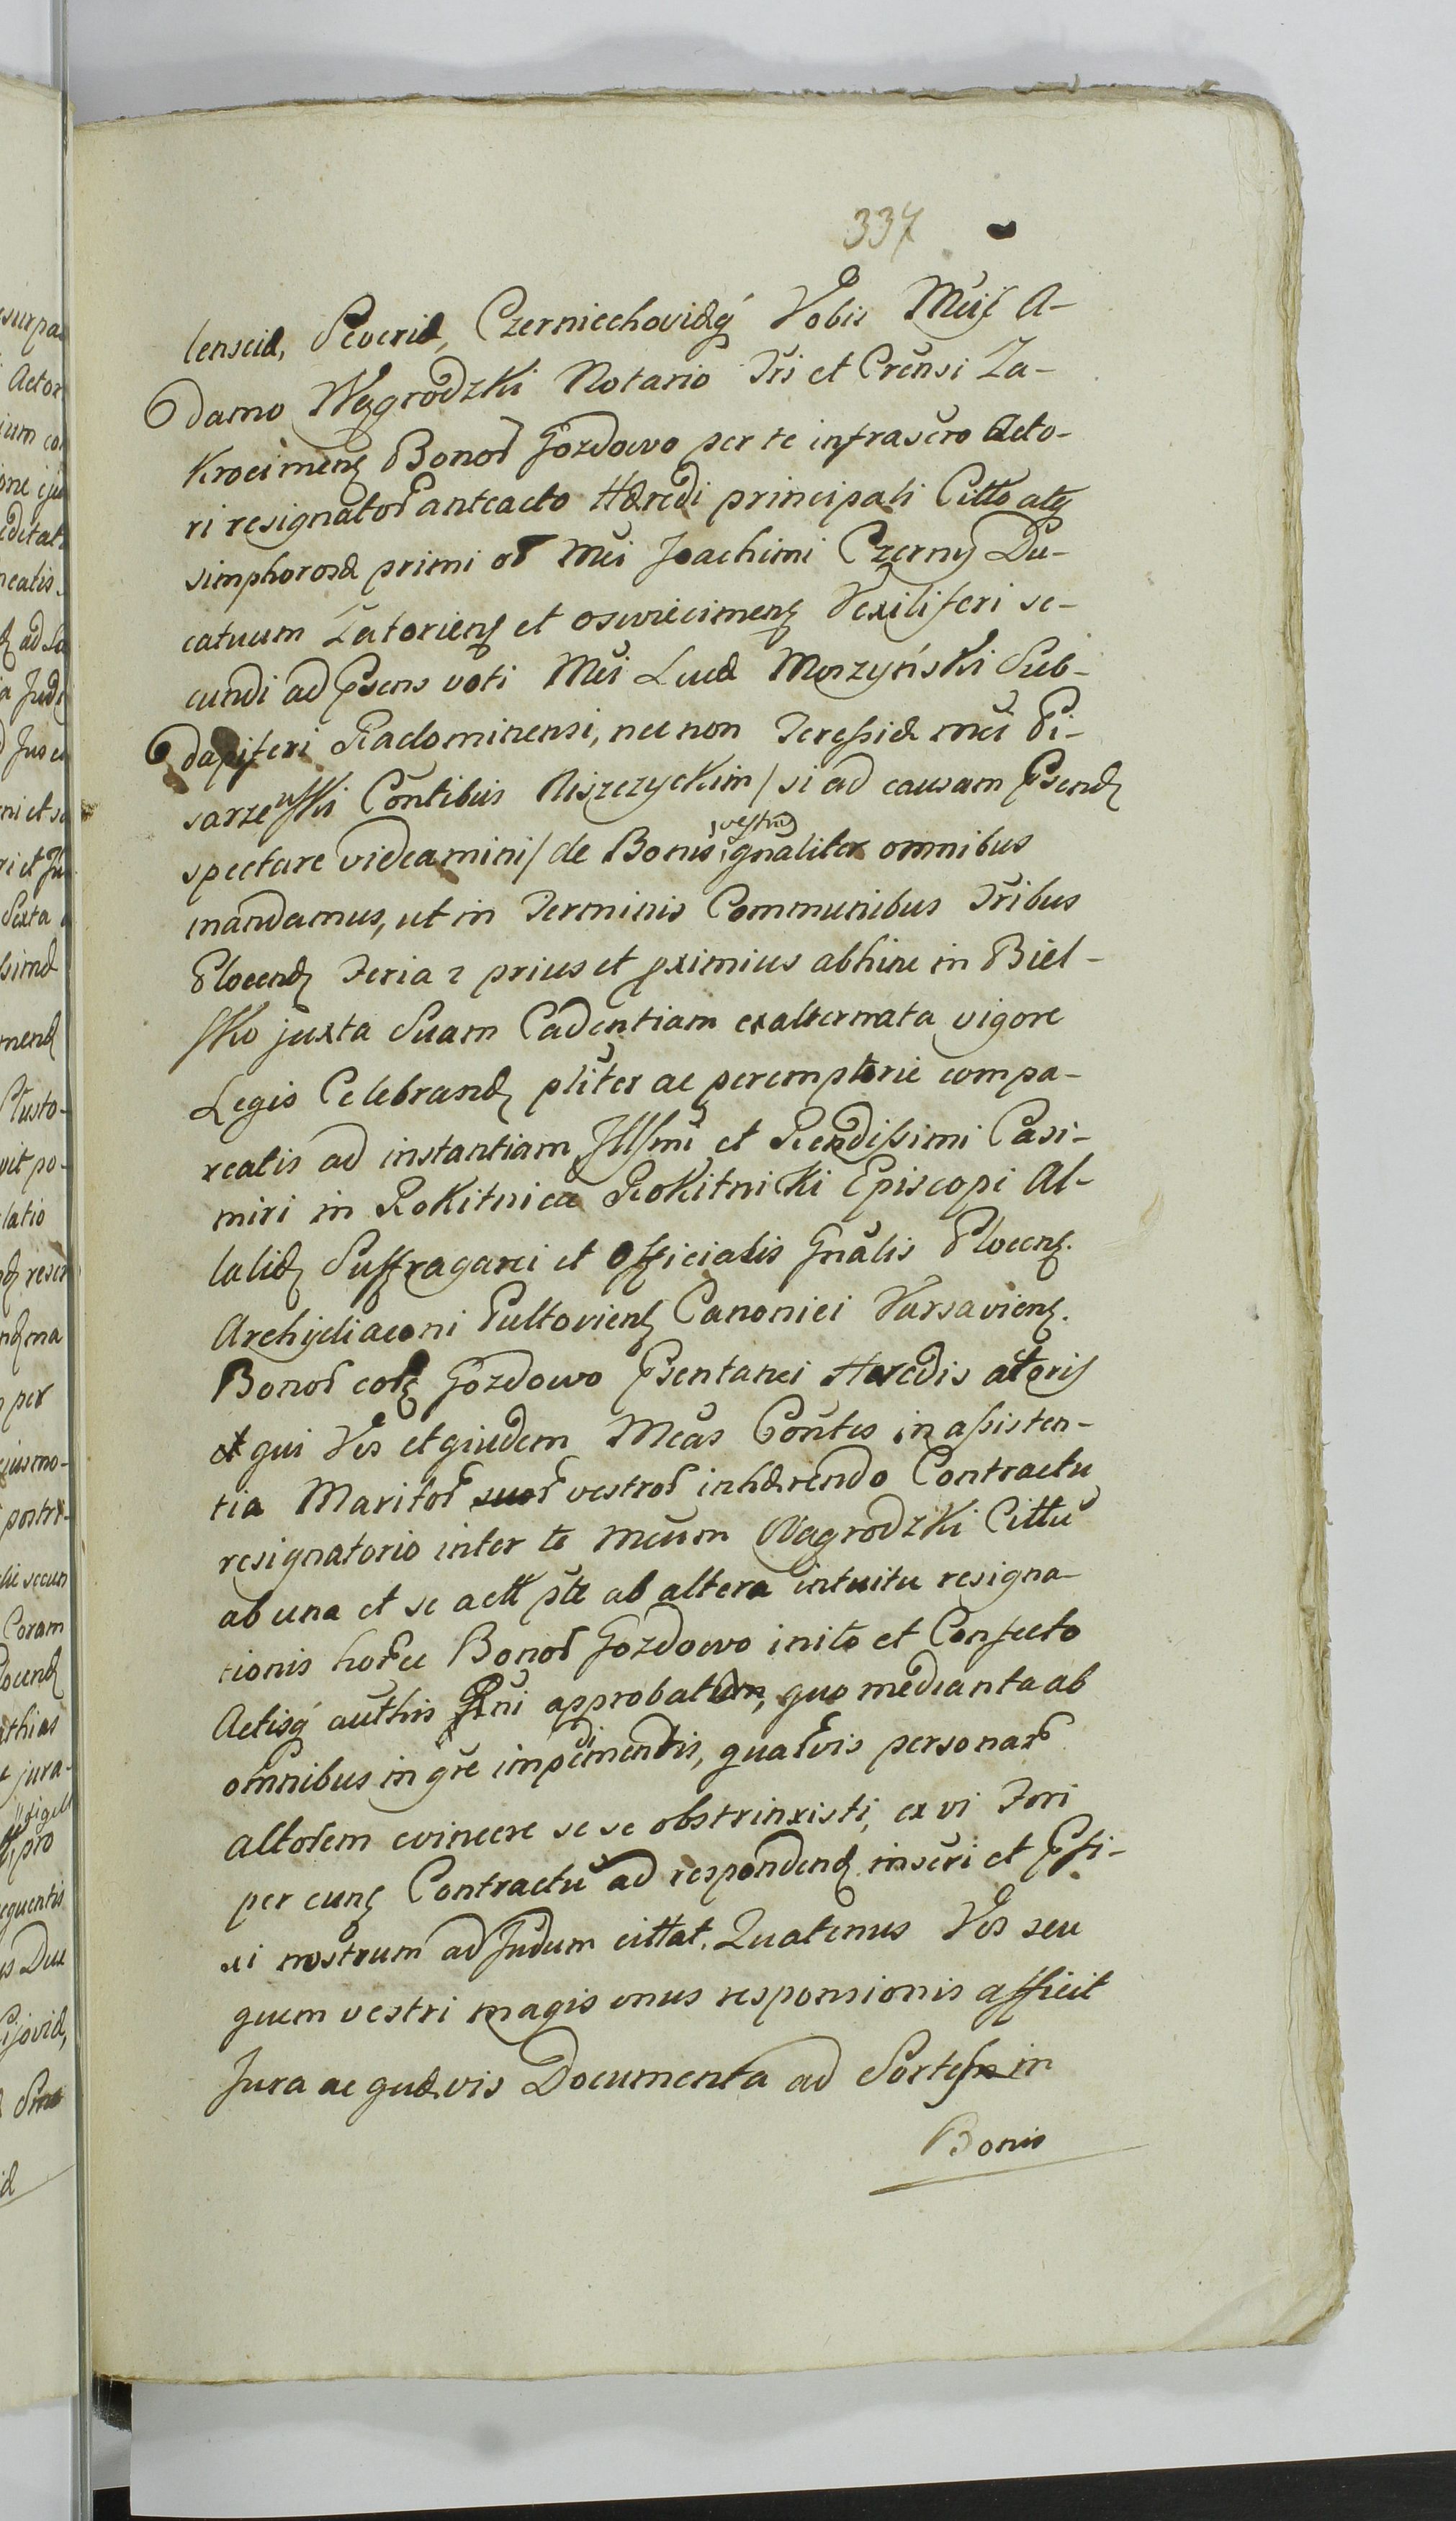 337
lensciæ, Severiæ, Czerniechoviæq́ Vobis Mcis A-
damo Węgrodzki Notario Tri et Crensi Za-
krocimens Bonor Gozdowo per te infrascro Acto-
ri resignator anteacto Hæredi principali Citto atq
simphorosæ primi ol Mci Joachimi Czerny Du-
catuum Zatoriens et oswiecimens Vexiliferi se-
cundi ad Psens voti Mci Lucæ Morzyński Sub-
dapiferi Radominensi, nec non Teressiæ mci Pi-
sarzewski Contibus Niszczyckim / si ad causam Psend
spectare videamini / de Bonis vestris gnaliter omnibus
mandamus, ut in Terminis Communibus Tribus
Plocens Feria 2 prius et pximius abhinc in Biel-
sko juxta Suam Cadentiam exalternata vigore
Legis Celebrand pliter ac peremptorie compa-
reatis ad instantiam Illsmi et Rendissimi Casi-
miri in Rokitnica Rokitnicki Episcopi Al-
laliæ Suffraganei et Officialis Gnalis Plocens.
Archidiaconi Pultoviens Canonici Varsaviens.
Bonor eor Gozdowo Psentanei Heredis actoris
et qui Vos et giudem Mcas Contes in assisten-
tia Maritor suor vestror inhærendo Contractu
resignatorio inter te Mcum Wagrodzki Cittu
ab una et se actt pte ab altera intuitu resigna-
tionis horce Bonor Gozdowo inito et Confecto
Actisq́ authis Pni approbatum, quo mediante ab
omnibus in gre impedimentis, quarvis personar
altorem evincere se se obstrinxisti, ex vi Fori
per eunq Contractu ad respondend inseri et Pfi-
xi nostrum ad Judum cittat. Quatenus Vos seu
quem vestri magis onus responsionis afficit
Jura ac quævis Documenta ad Sortes in
Bonis